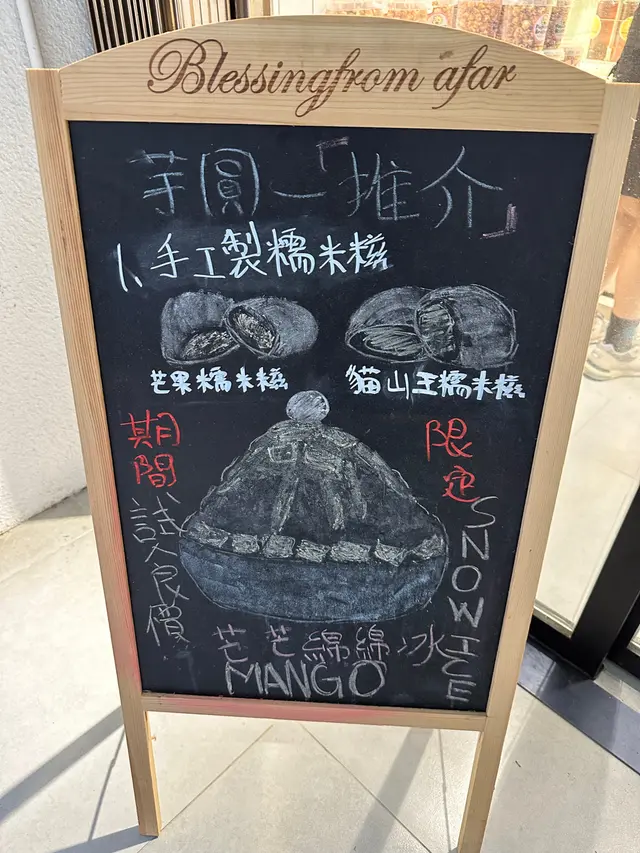 Blessingfrom afar
芋圓一「推介」
1、手工製糯米糍
芒果糯米糍
貓山王糯米糍
期間
限定
試食價
SNOW ICE
芒芒綿綿冰
MANGO